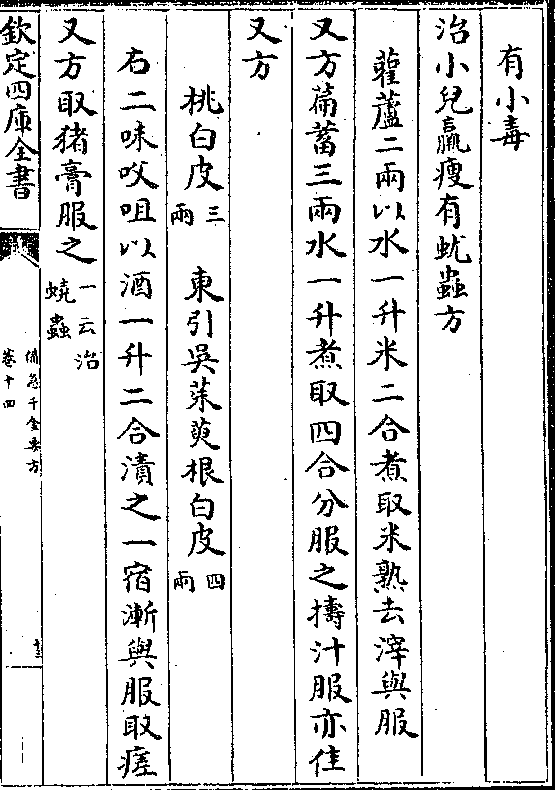 有小毒
治小兒羸瘦有蚘蟲方
雚蘆二兩以水一升米二合煮取米熟去滓與服
又方萹蓄三兩水一升煮取四合分服之擣汁服亦佳
又方
桃白皮三兩 東引吳茱萸根白皮四兩
右二味㕮咀以酒一升二合漬之一宿漸與服取瘥
又方取猪膏服之一云治蟯蟲
欽定四庫全書
備急千金要方
卷十四